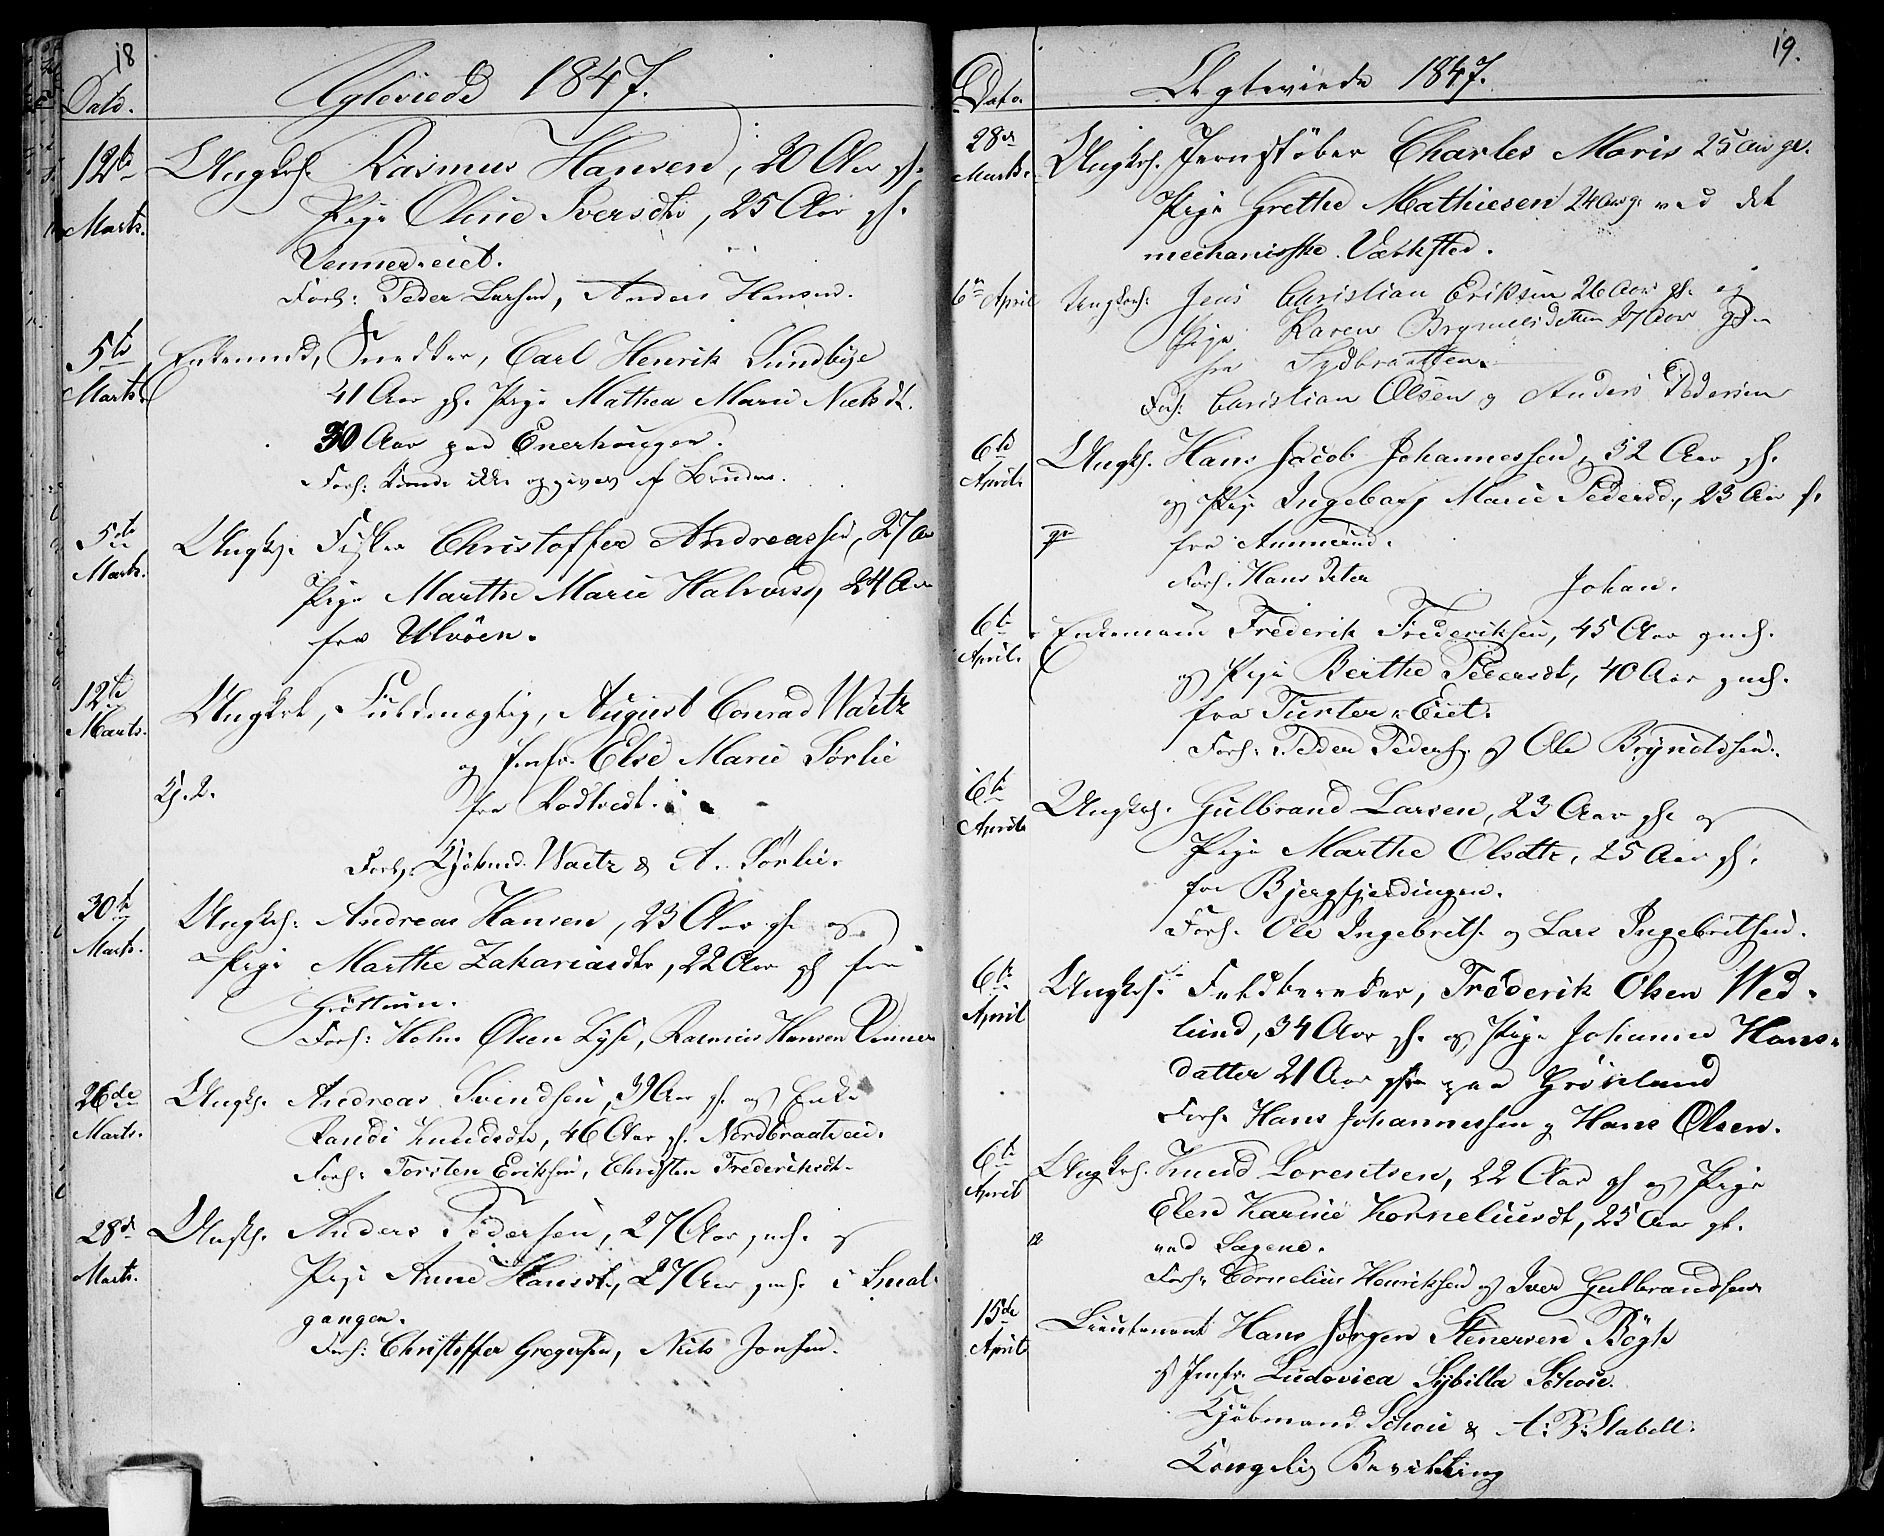 18
Dato. Egteviede 1847.
12te Ungkrl. Rasmus Hansen, 30 Aar gl.
Marts. Pige Oline Iversdtr, 25 Aar gl.
Vennerseiet.
Forl: Peder Larsen, Anders Hansen.
5te Enkemand, Snedker, Carl Henrik Sundbye
Marts. 41 Aar gl. Pige Mathea Marie Nielsdt.
30 Aar paa Enerhougen.
Forl: Kunde ikke opgives af Bruden.
5te Ungk. Fisker Christoffer Andreassen, 27 Aar
Marts. Pige Marthe Marie Halvorsd, 24 Aar
fra Ulvöen.
12te Ungkrl, Fuldmægtig, August Conrad Waitz
Marts. og Jomfr. Else Marie Sørlie
Kj. 2. fra Rodtvedt.
Forl. Kjöbmd. Waitz & A. Sørlie.
30te Ungkrl. Andreas Hansen, 23 Aar gl. og
Marts. Pige Marthe Zakariasdtr, 22 Aar gl fra
Forl: Holm Olsen Lyse, Rasmus Hansen
26de Ungk. Andreas Svendsen, Aar gl. og Enke
Marts. Randi Knudsdtr, 46 Aar gl. Nordbraatveien.
Forl: Torsten Eriksen, Christen Frederiksdt.
28de Ungk. Anders Pedersen, 27 Aar gml. og
Marts. Pige Anne Hansdt, 27 Aar gml. i Smal-
gangen.
Forl: Christoffer Gregersen, Niels Jonsen.
19.
Dato. Egteviede 1847.
28de Ungkrl. Jernstöber Charles Moris 25 Aar gl.
Marts. Pige Grethe Mathiesen 24 Aar gl ved det
mechanisske Værksted.
6te April Ungkarl. Jens Christian Eriksen 26 Aar gl. og
Pige Karen Brynildsdatter 27 Aar gl.
fra Sydbraatten.
Forl: Christian Olsen og Anders Pedersen
6te Ungk. Hans Jacob Johannessen, 32 Aar gl.
April. og Pige Ingeborg Marie Pedersd, 23 Aar
gl fra Ammerud.
Forl. Hans Peter Johan.
6te Enkemand Frederik Frederiksen, 45 Aar gml.
April. og Pige Berthe Pedersdt, 40 Aar gml.
fra Turter-Eiet.
Forl: Peder Peders. og Ole Bryndtsen.
6te Ungkrl. Gulbrand Larsen, 23 Aar gl. og
April Pige Marthe Olsdtr, 25 Aar gl.
fra Bjergfjerdingen.
Forl. Ole Ingebrets. og Lars Ingebritsen.
6te Ungkrl. Feldbereder, Frederik Olsen Wed-
April lund, 34 Aar gl. og Pige Johanne Hans-
datter 21 Aar gl paa Grönland
Forl. Hans Johannessen og Hans Olsen.
6te Ungkrl. Knud Lorentsen, 22 Aar gl og Pige
April Elen Karine Korneliusdt, 25 Aar gl.
12 ved Sagene.
Forl. Cornelius Henriksen og Iver Gulbrandsen
15de Lieutenant Hans Jörgen Stenersen Bögh
April og Jomfr. Ludovica Sybilla Schou.
Kjöbmand Schou & A. B. Stabell.
Kongelig Bevilling